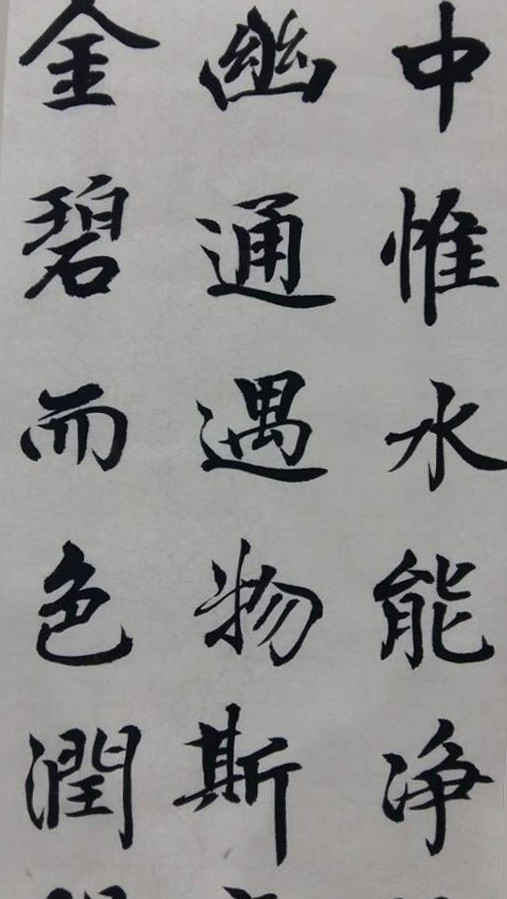 中惟水能净
幽通遇物斯
金碧而色潤